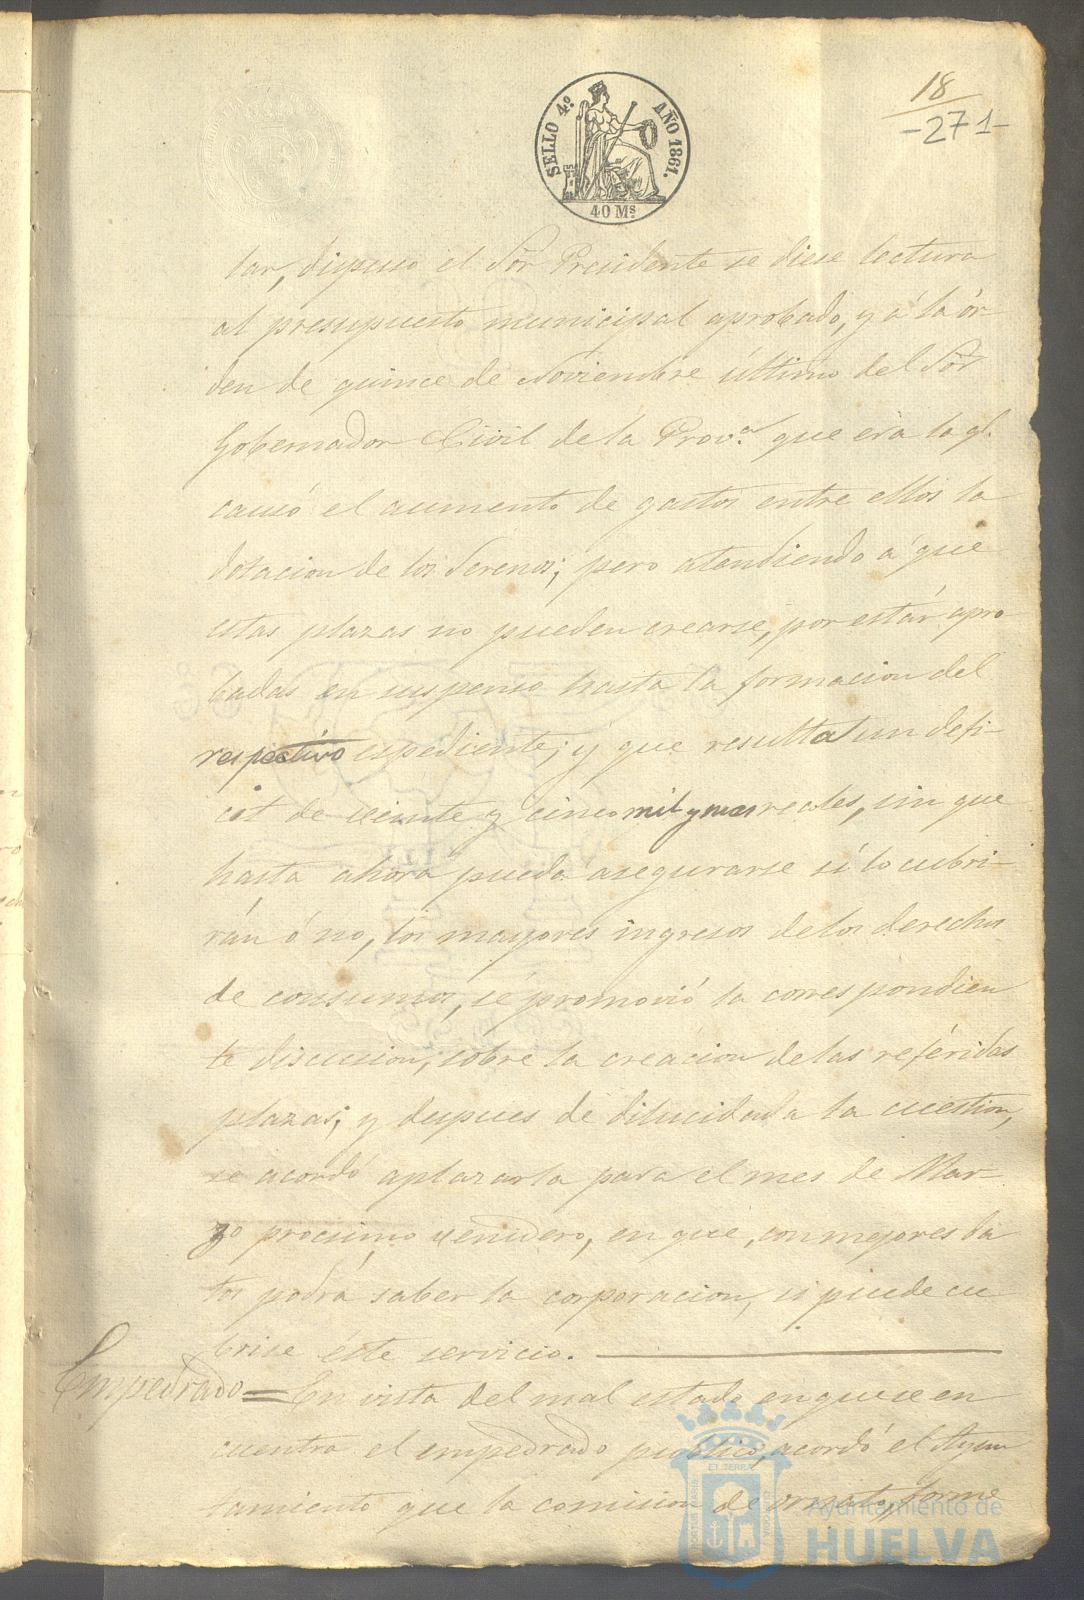 SELLO 4º. AÑO 1861.
40 Ms.
18
-271-
tar, dispuso el Sôr Presidente se diese lectura
al presupuesto municipal aprobado, y á la ór-
den de quince de Noviembre último del Sôr
Gobernador Civil de la Prov.ª que era la ql.
causó el aumento de gastos entre ellos la
dotacion de los Serenos; pero atendiendo á que
estas plazas no pueden crearse, por estár apro
badas en suspenso hasta la formacion del
respectivo espediente; y que resulta un defi-
cit de veinte y cinco mil y mas reales, sin que
hasta ahora pueda asegurarse si lo cubri-
rán ó no, los mayores ingresos de los derechos
de consumos, se promovió la correspondien
te discusion, sobre la creacion de las referidas
plazas; y despues de dilucidada la cuestion,
se acordó aplazarla para el mes de Mar-
zo procsimo venidero, en que, con mejores da
tos podrá saber la corporacion, si puede cu
brise éste servicio.
Empedrado = En vista del mal estado en que se en
cuentra el empedrado publico, acordó el Ayun
tamiento que la comision de ornato, forme
Ayuntamiento de
HUELVA